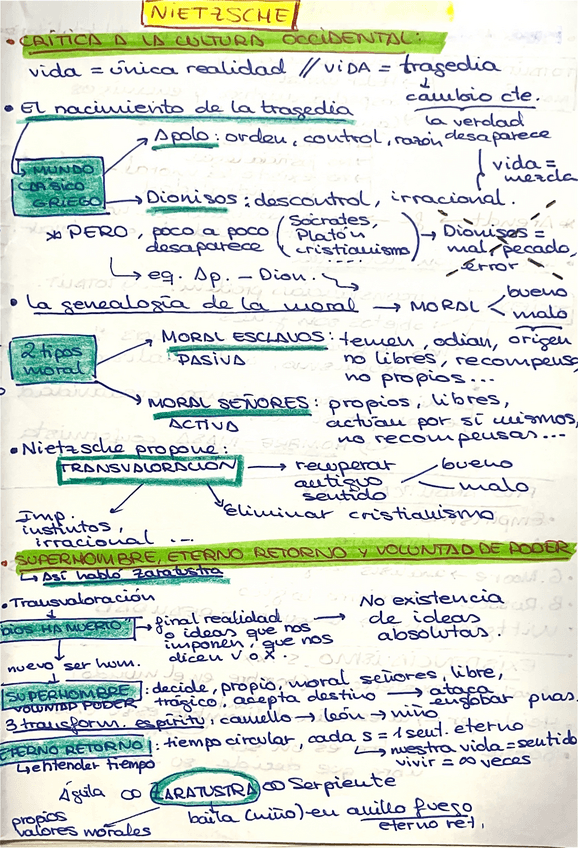 NIETZSCHE
• CRÍTICA A LA CULTURA OCCIDENTAL:
vida = única realidad // VIDA = tragedia
↓
cambio cte.
• El nacimiento de la tragedia
la verdad
desaparece
Apolo: orden, control, razón
vida =
mezcla
MUNDO
CLÁSICO
GRIEGO
Dionisos: descontrol, irracional.
* PERO, poco a poco
desaparece
(Sócrates,
Platón,
cristianismo)
....
→ Dionisos =
mal, pecado,
error
eq. Ap. - Dion.
• La genealogía de la moral → MORAL < bueno
malo
2 tipos
moral
MORAL ESCLAVOS: temen, odian, origen
PASIVA
no libres, recompensa
no propios...
MORAL SEÑORES: propios, libres,
ACTIVA
actúan por sí mismos,
no recompensas...
• Nietzsche propone:
TRANSVALORACIÓN → recuperar
antiguo
sentido
bueno
malo
Imp.
instintos,
irracional ...
eliminar cristianismo
• SUPERHOMBRE, ETERNO RETORNO Y VOLUNTAD DE PODER
↳ Así habló Zaratustra
• Transvaloración
DIOS HA MUERTO" → final realidad
o ideas que nos
imponen, que nos
dicen V o X.
→ No existencia
de ideas
absolutas.
nuevo ser hum.
SUPERHOMBRE
VOLUNTAD PODER
: decide, propio, moral señores, libre,
trágico, acepta destino → ataca
engobar pnas.
3 transform. espíritu: camello → león → niño
ETERNO RETORNO: tiempo circular, cada s = 1 sent. eterno
↳ entender tiempo
↳ nuestra vida = sentido
vivir = ∞ veces
Águila ∞ ZARATUSTRA ∞ Serpiente
propios
valores morales
baila (niño) - en anillo fuego
eterno ret.